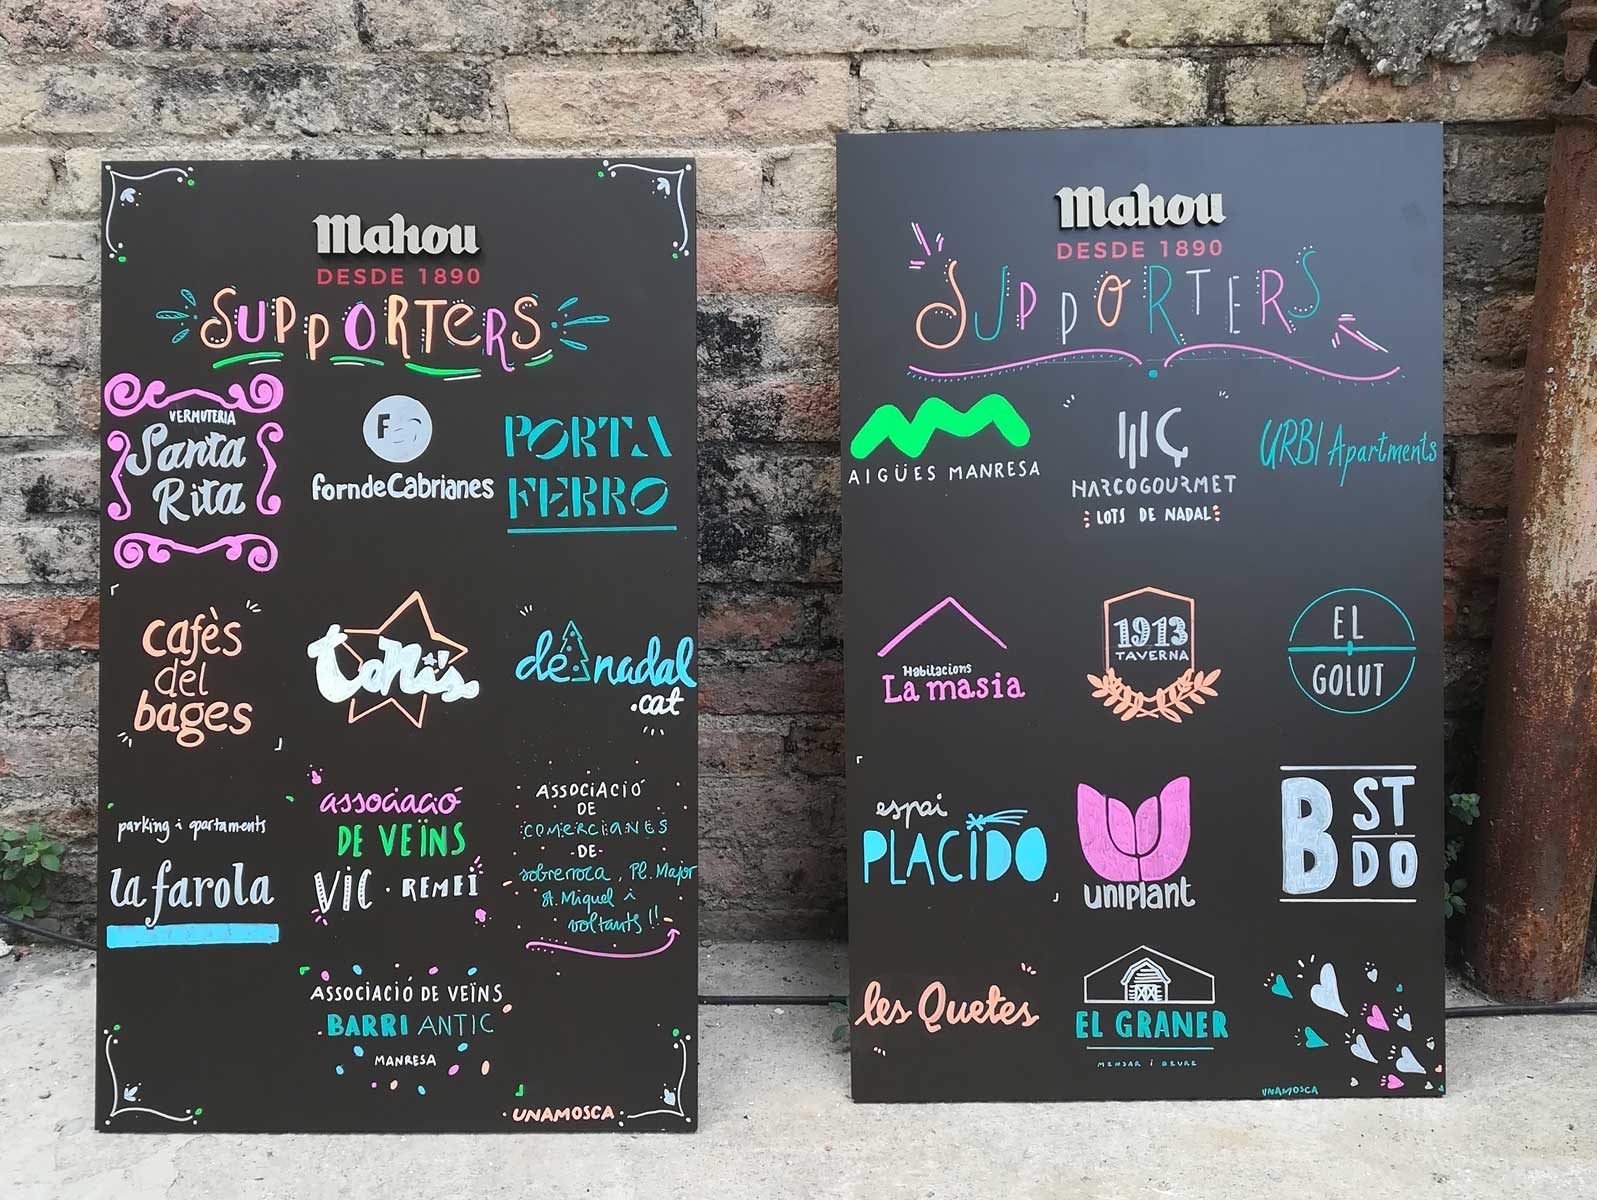 Mahou
DESDE 1890
SUPPORTERS
VERMUTERIA
Santa
Rita
F
forndeCabrianes
PORTA
FERRO
cafès
del
bages
toni's
denadal
.cat
parking i apartaments
la farola
associació
DE VEÏNS
VIC · REMEI
ASSOCIACIÓ
DE
COMERCIANTS
-DE-
sobrerroca, Pl. Major
St. Miquel i
voltants!!
ASSOCIACIÓ DE VEÏNS
BARRI ANTIC
MANRESA
UNAMOSCA
Mahou
DESDE 1890
SUPPORTERS
AIGÜES MANRESA
HARCOGOURMET
LOTS DE NADAL
URBI Apartments
Habitacions
La masia
1913
TAVERNA
EL
GOLUT
espai
PLACIDO
uniplant
B ST
DO
les Quetes
EL GRANER
MENJAR I BEURE
UNAMOSCA